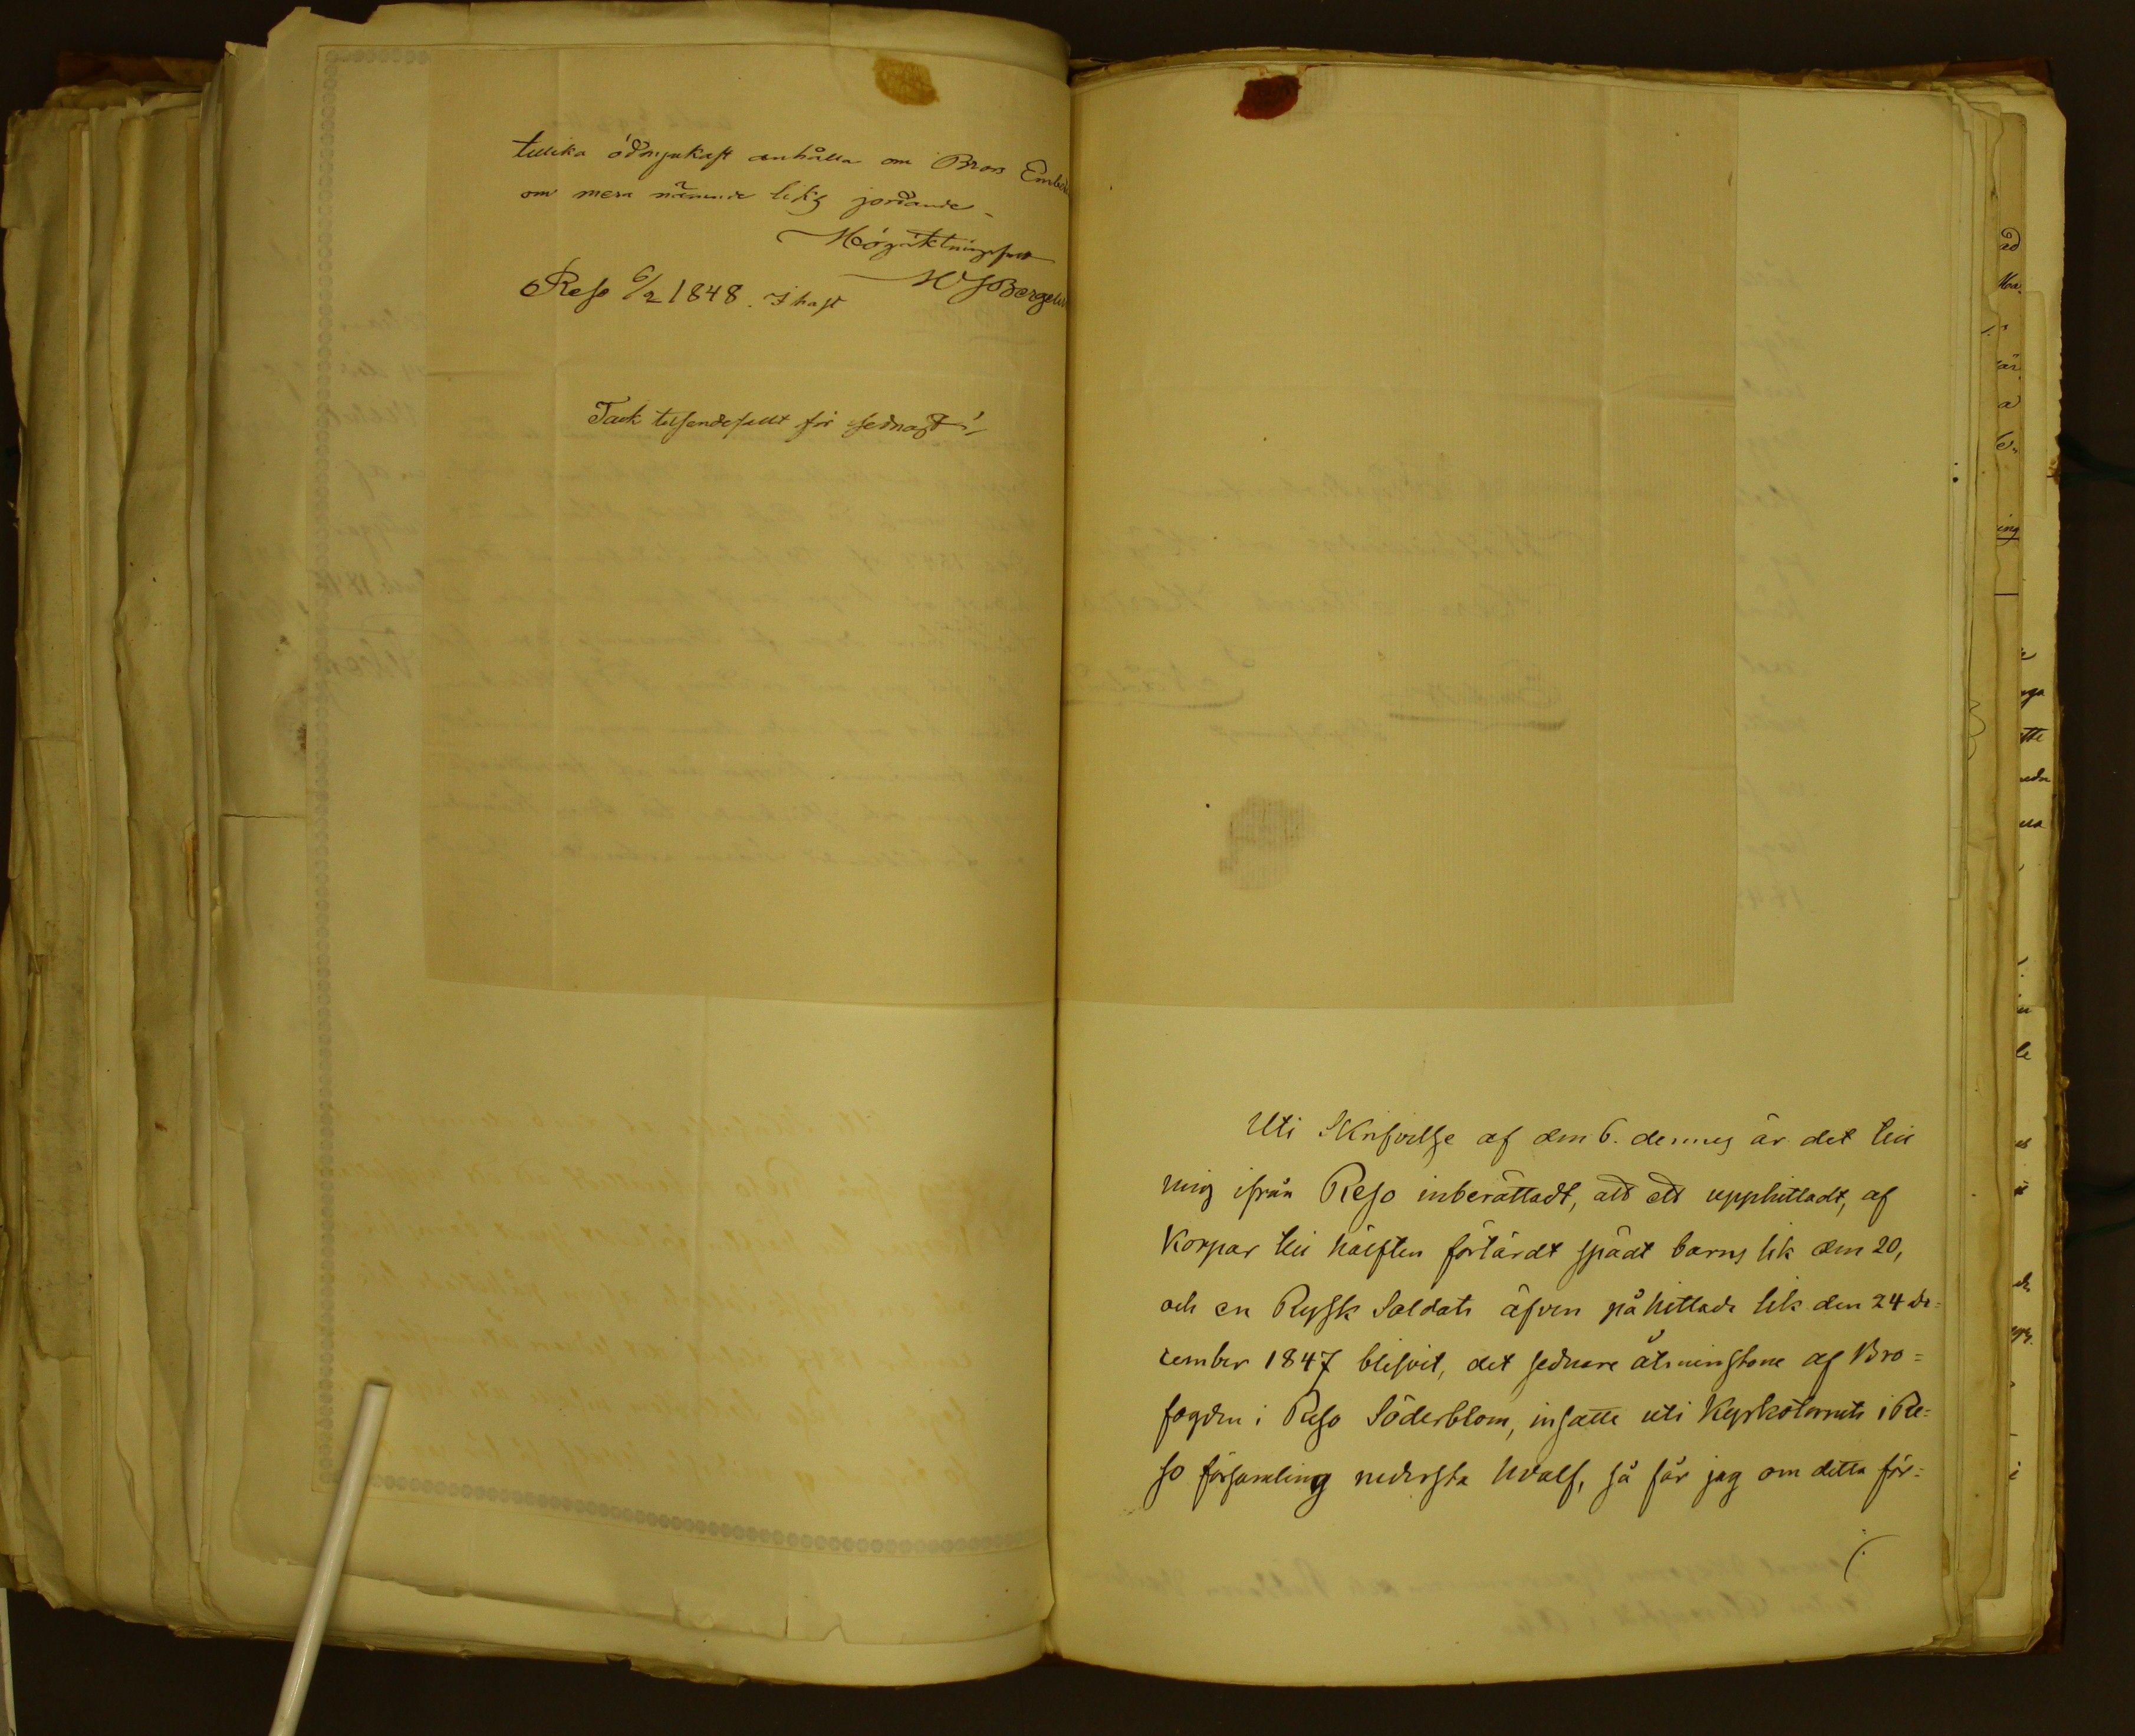 tillika ödmjukast anhålla om Brors Embets
om mera nämnde likz jordande
Högaktningsfullt
Reso 6/2 1848. I hast
Tack tusendefallt för sednast!
Uti Skrifvelse af den 6. dennes är det till
mig ifrån Reso inberättadt, att ett upphittadt, af
Korpar till hälften förtärdt spädt barns lik den 20,
och en Rysk Soldats äfven påhittade lik den 24 De=
cember 1847 blifvit, det sednare åtminstone af Bro=
fogden i Reso Söderblom, insatte uti Kyrkotornets i Re=
so församling nedersta hvalf, så får jag om detta för=